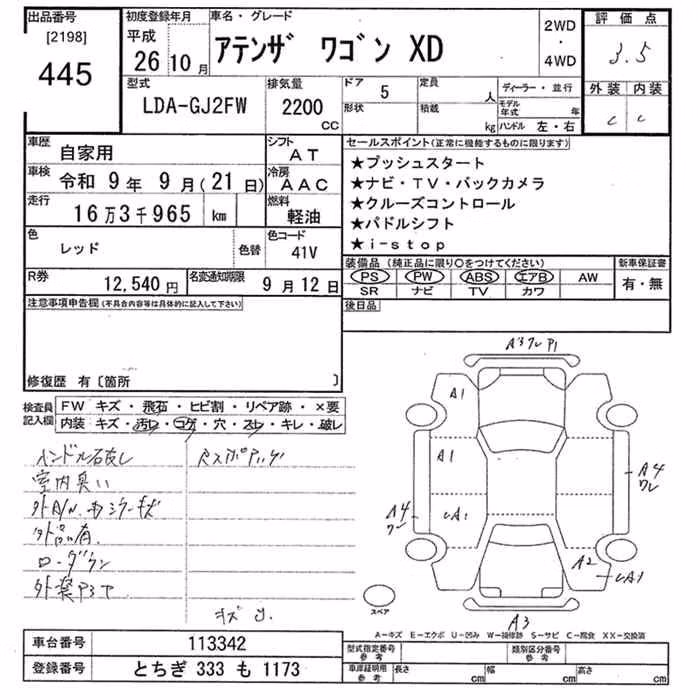 出品番号
[2198]
445
初度登録年月
平成
26 10 月
車名・グレード
アテンザ ワゴン XD
2WD
・
4WD
評価点
3.5
型式
LDA-GJ2FW
排気量
2200
CC
ドア
5
形状
定員
人
積載
kg
ディーラー・並行
モデル年式 年
ハンドル 左・右
外装 内装
C C
車歴
自家用
シフト
AT
車検
令和 9 年 9 月 (21 日)
冷房
AAC
走行
16 万 3 千 965 km
燃料
軽油
色
レッド
色替
色コード
41V
R券
12,540 円
名変通知期限
9 月 12 日
セールスポイント(正常に機能するものに限ります)
★プッシュスタート
★ナビ・TV・バックカメラ
★クルーズコントロール
★パドルシフト
★i-stop
装備品 (純正品に限り○をつけてください)
PS PW ABS エアB AW
SR ナビ TV カワ
新車保証書
有・無
後日品
注意事項申告欄(不具合内容等は具体的に記入して下さい)
修復歴 有〔箇所 〕
検査員記入欄
FW キズ・飛石・ヒビ割・リペア跡・×要
内装 キズ・汚レ・コゲ・穴・スレ・キレ・破レ
室内臭い
外品有
ローダウン
キズ
A3 ワレ P1
A1
A1
A1
A4
ワレ
A4
ワレ
A2
A3
スペア
A-キズ E-エクボ U-凹み W-補修跡 S-サビ C-腐食 XX-交換済
車台番号
113342
登録番号
とちぎ 333 も 1173
型式指定番号
参考
類別区分番号
参考
車庫証明用
参考
長さ cm
幅 cm
高さ cm